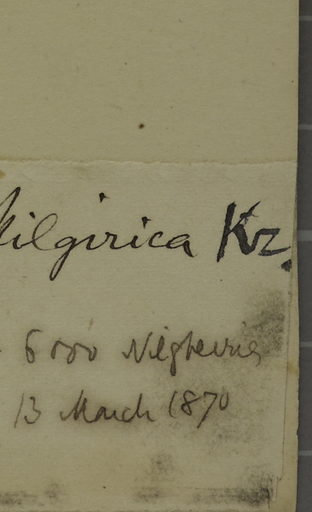 Nilgirica Kz.
6000 Nilgherries
13 March 1870